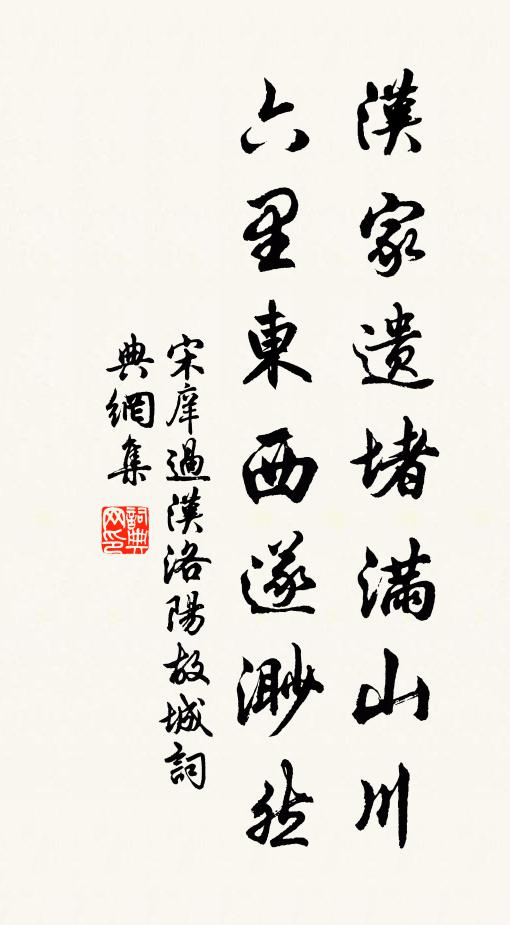 漢家遺堵滿山川
六里東西遂渺然
宋庠過漢洛陽故城詞
典網集
詞典网印